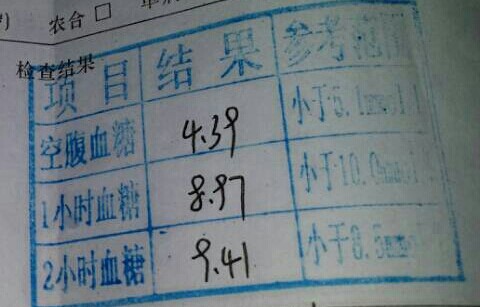 农合 □
检查结果
项目 结果 参考范围
空腹血糖 4.39 小于5.1mmol
1小时血糖 8.97 小于10.0mmol
2小时血糖 9.41 小于8.5mmol